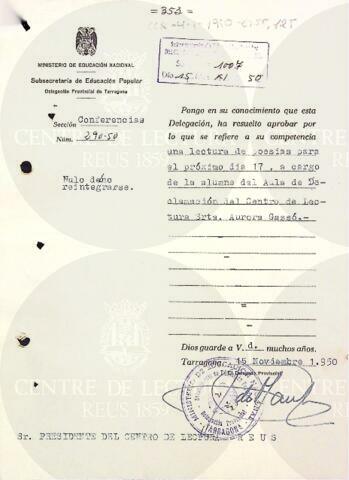 = 354 =
MINISTERIO DE EDUCACIÓN NACIONAL
Subsecretaría de Educación Popular
Delegación Provincial de Tarragona
Sección Conferencias
Núm. 290-50
Nulo debe
reintegrarse.
1007
Día 15 XI 50
Pongo en su conocimiento que esta
Delegación, ha resuelto aprobar por
lo que se refiere a su competencia
una lectura de poesias para
el próximo dia 17 , a cargo
de la alumna del Aula de De-
clamación del Centro de Lec-
tura Srta. Aurora Gassó.-
Dios guarde a V. d. muchos años.
Tarragona, 15 Noviembre 1.950
El Delegado Provincial
MINISTERIO DE EDUCACIÓN
TARRAGONA
Sr. PRESIDENTE DEL CENTRO DE LECTURA REUS
CENTRE DE LECTURA
REUS 1859